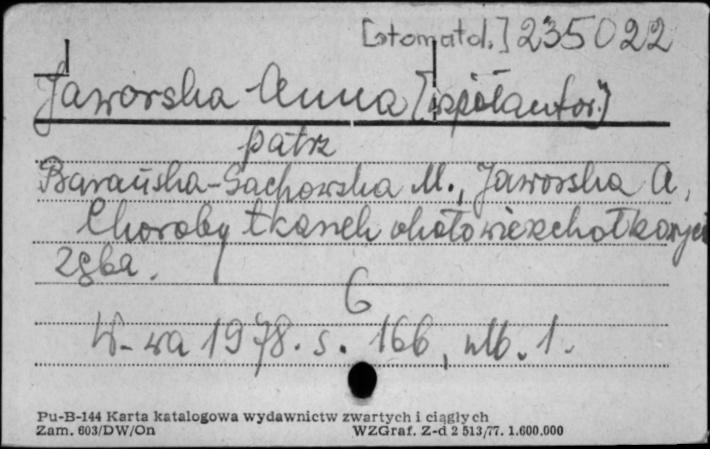 [stomatol.] 235022
Jaworska Anna [współautor]
patrz
Barańska-Gachowska M., Jaworska A,
Choroby tkanek okołowierzchołkowych
zęba.
6
W-wa 1978. s. 166, nlb. 1.
Pu-B-144 Karta katalogowa wydawnictw zwartych i ciągłych
Zam. 603/DW/On WZGraf. Z-d 2 513/77. 1.600.000